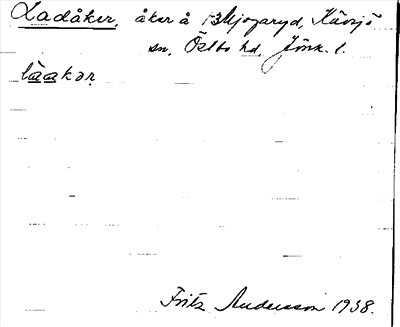 Ladåker, åker å Bkjogaryd, Hävsjö
sn, Östbo hd. Jönk. l.
làakər
Fritz Andersson 1938.